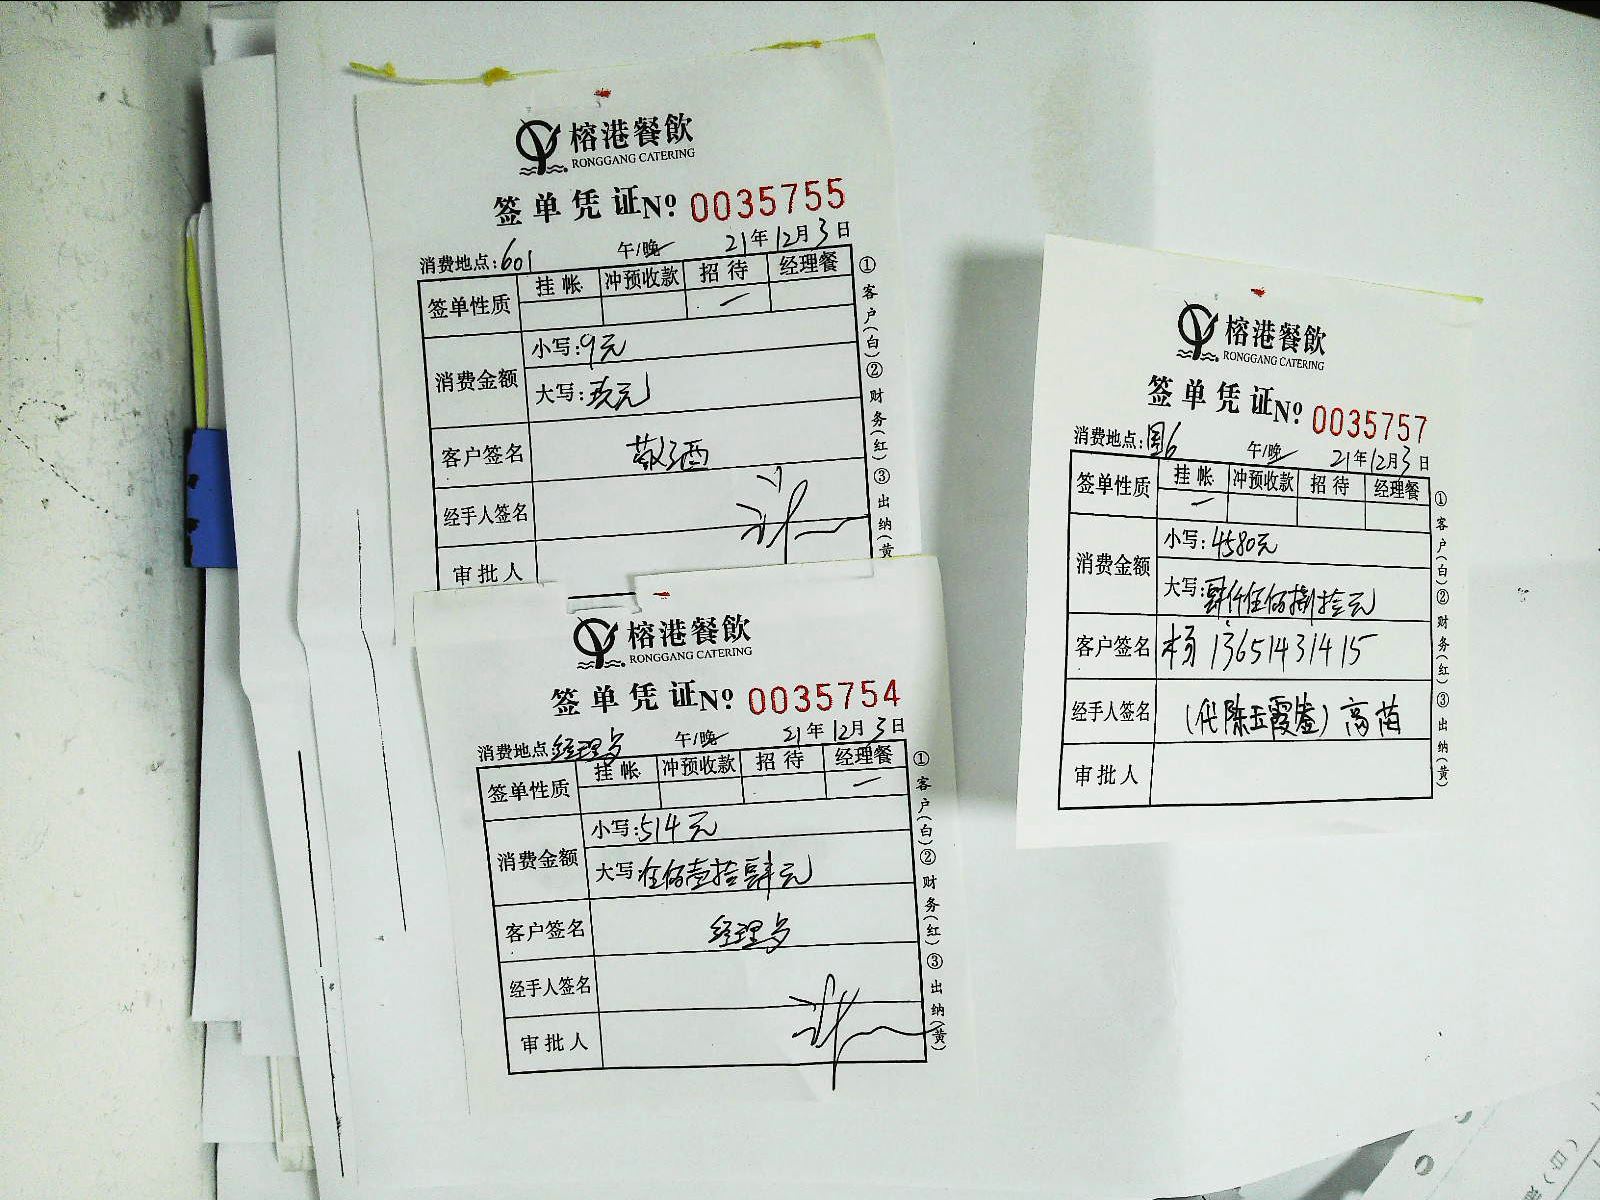 榕港餐飲
RONGGANG CATERING
签单凭证 No. 0035755
消费地点:601 午/晚 21年12月3日
签单性质 挂帐 冲预收款 招待 经理餐
消费金额 小写:9元
大写:玖元
客户签名 敬酒
经手人签名
审批人
①客户(白)②财务(红)③出纳(黄
榕港餐飲
RONGGANG CATERING
签单凭证 No. 0035754
消费地点 经理歺 午/晚 21年12月3日
签单性质 挂帐 冲预收款 招待 经理餐
消费金额 小写:514元
大写 伍佰壹拾肆元
客户签名 经理歺
经手人签名
审批人
①客户(白)②财务(红)③出纳(黄)
榕港餐飲
RONGGANG CATERING
签单凭证 No. 0035757
消费地点:国6 午/晚 21年12月3日
签单性质 挂帐 冲预收款 招待 经理餐
消费金额 小写:4580元
大写:肆仟伍佰捌拾元
客户签名 杨 13651431415
经手人签名 (代陈玉霞签) 高苗
审批人
①客户(白)②财务(红)③出纳(黄)